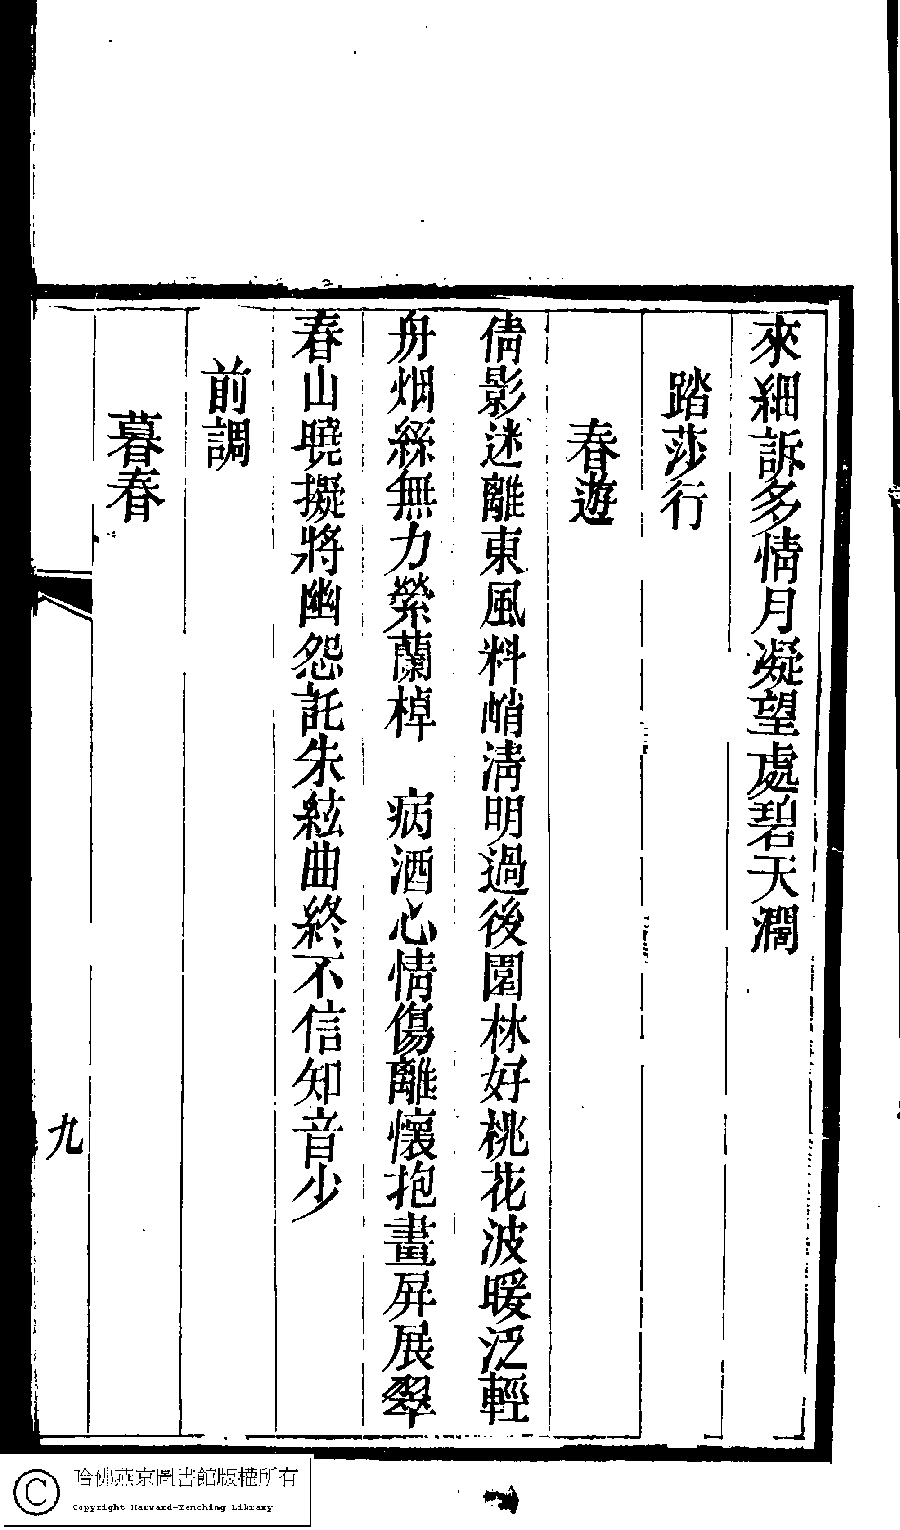 來細訴多情月凝望處碧天濶
踏莎行
春遊
倩影迷離東風料峭淸明過後園林好桃花波暖泛輕
舟烟絲無力縈蘭棹　病酒心情傷離懷抱畫屏展翠
春山曉擬將幽怨託朱絃曲終不信知音少
前調
暮春
九
哈佛燕京圖書館版權所有
Copyright Harvard-Yenching Library